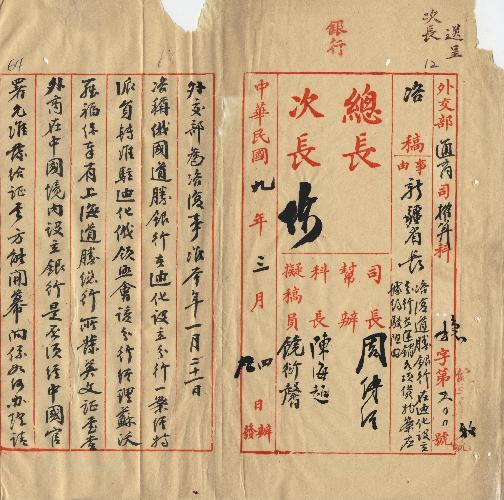 送呈
次長
銀行
12
64
外交部通商司榷算科
字第 號
咨稿
事由
新疆省長
咨復道勝銀行在迪化設立
分行
總長
次長
司長 周傳經
幫辦
科長 陳海超
擬稿員 饒衍馨
中華民國九年三月 四日
辦
發
外交部為咨復事准本年一月三十一日
咨稱俄國道勝銀行在迪化設立分行一案經特
派員轉准駐迪化俄領函會該分行經理蘇沃
羅福係奉有上海道勝總行所發英文證書查
外商在中國境內設立銀行是否須經中國官
署允准發給證書方能開幕內係如何辦理請